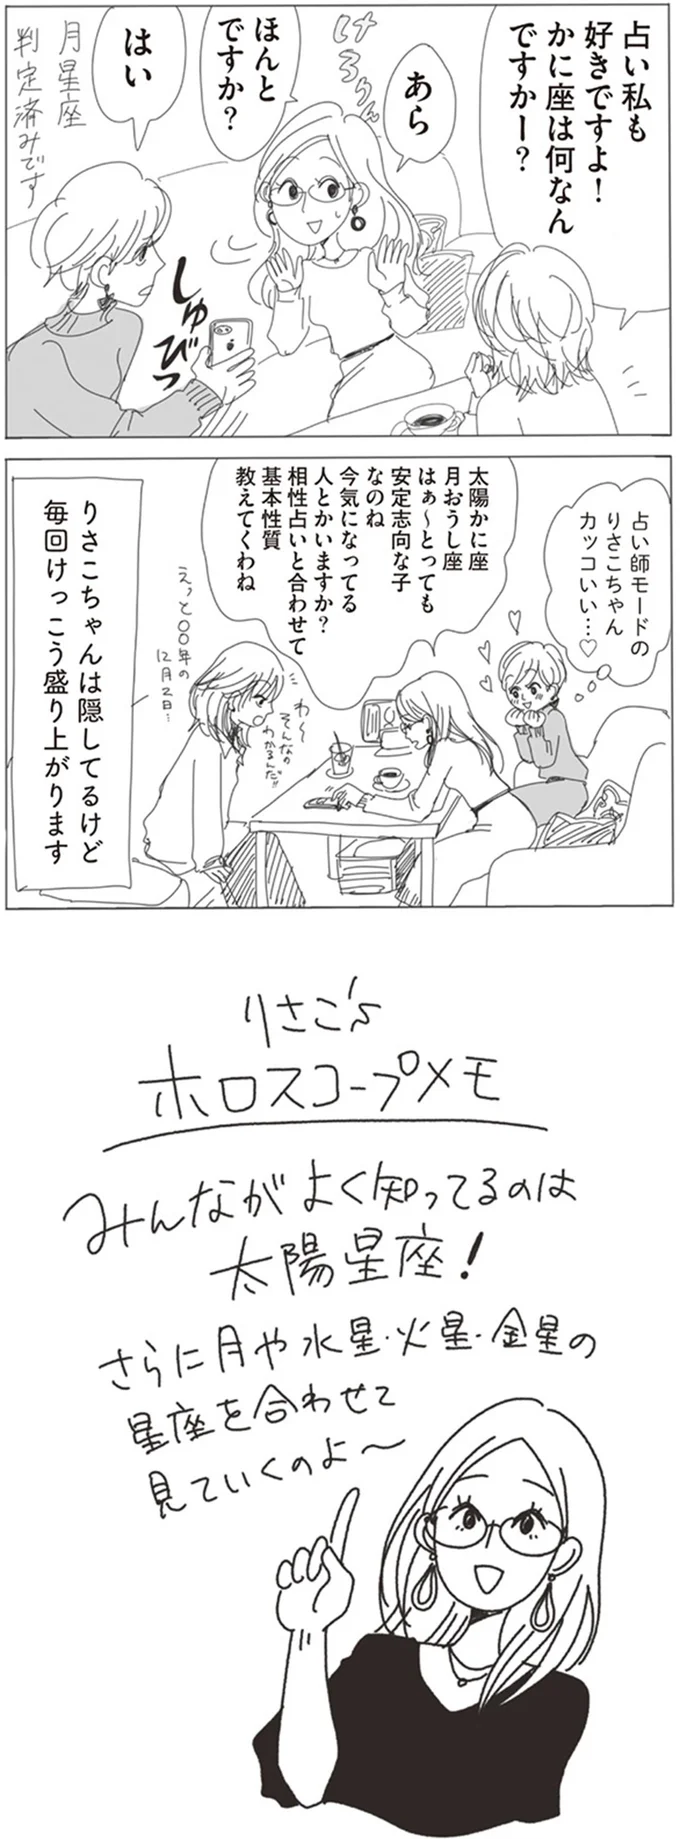 占い私も
好きですよ!
かに座は何なん
ですかー?
あら
けろりん
ほんと
ですか?
はい
月星座
判定済みです
しゅびっ
占い師モードの
りさこちゃん
カッコいい…♡
太陽かに座
月おうし座
はぁ〜とっても
安定志向な子
なのね
今気になってる
人とかいますか?
相性占いと合わせて
基本性質
教えてくわね
わ〜
そんなの
わかるんだ!!
えっと〇〇年の
12月2日…
りさこちゃんは隠してるけど
毎回けっこう盛り上がります
りさこ's
ホロスコープメモ
みんながよく知ってるのは
太陽星座!
さらに月や水星・火星・金星の
星座を合わせて
見ていくのよ〜